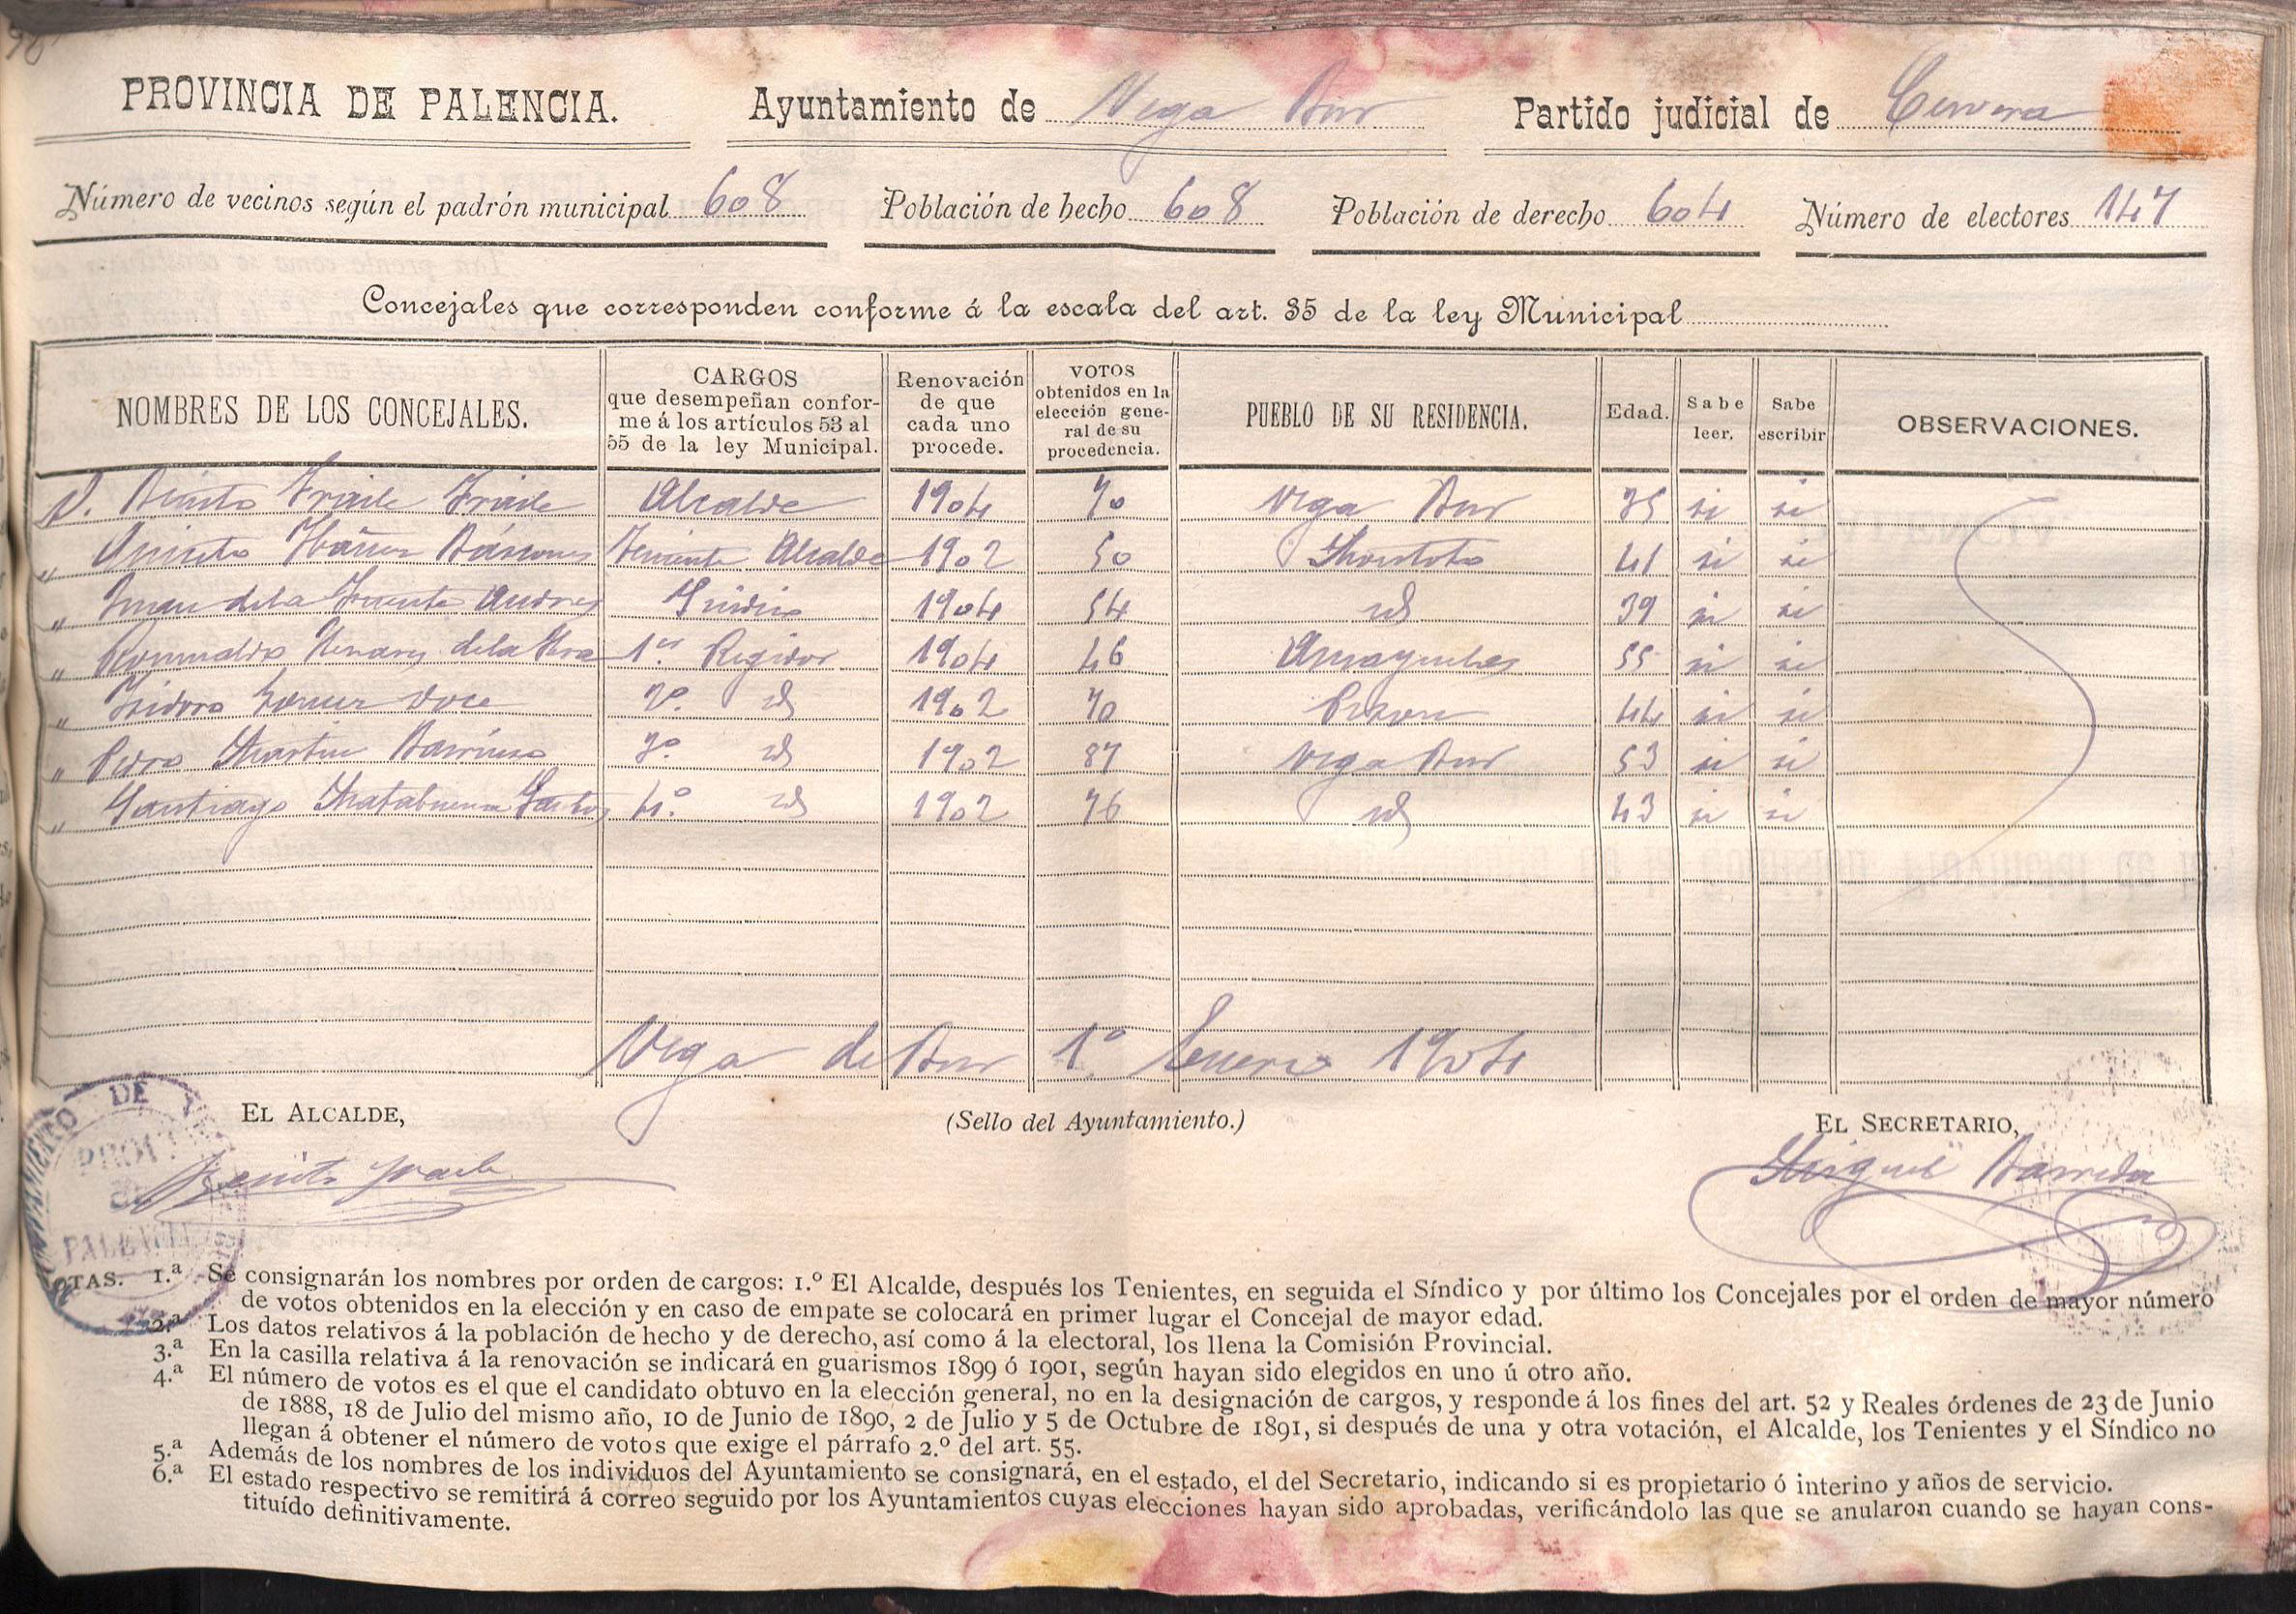 PROVINCIA DE PALENCIA. Ayuntamiento de Vega Bur Partido judicial de Cervera
Número de vecinos según el padrón municipal 608 Población de hecho 608 Población de derecho 604 Número de electores 147
Concejales que corresponden conforme á la escala del art. 35 de la ley Municipal
NOMBRES DE LOS CONCEJALES. CARGOS que desempeñan confor- me á los artículos 53 al 55 de la ley Municipal. Renovación de que cada uno procede. VOTOS obtenidos en la elección gene- ral de su procedencia. PUEBLO DE SU RESIDENCIA. Edad. Sabe leer. Sabe escribir OBSERVACIONES.
D. Benito Fraile Fraile Alcalde 1904 70 Vega Bur 35 si si
" Ibáñez Bascones Teniente Alcalde 1902 50 Montoto 41 si si
" Juan de la Fuente Andres Sindico 1904 54 id 39 si si
" Romualdo de la Hera 1er Regidor 1904 46 Amayuelas 55 si si
" Isidoro 2º id 1902 70 44 si si
" Pedro Martin 3º id 1902 87 Vega Bur 53 si si
" Santiago Matabuena Santos 4º id 1902 76 id 43 si si
Vega de Bur 1º Enero 1904
EL ALCALDE, (Sello del Ayuntamiento.) EL SECRETARIO,
Benito Fraile Miguel Barreda
DE
PROV
PALEN
OTAS. 1.ª Se consignarán los nombres por orden de cargos: 1.º El Alcalde, después los Tenientes, en seguida el Síndico y por último los Concejales por el orden de mayor número
de votos obtenidos en la elección y en caso de empate se colocará en primer lugar el Concejal de mayor edad.
2.ª Los datos relativos á la población de hecho y de derecho, así como á la electoral, los llena la Comisión Provincial.
3.ª En la casilla relativa á la renovación se indicará en guarismos 1899 ó 1901, según hayan sido elegidos en uno ú otro año.
4.ª El número de votos es el que el candidato obtuvo en la elección general, no en la designación de cargos, y responde á los fines del art. 52 y Reales órdenes de 23 de Junio
de 1888, 18 de Julio del mismo año, 10 de Junio de 1890, 2 de Julio y 5 de Octubre de 1891, si después de una y otra votación, el Alcalde, los Tenientes y el Síndico no
llegan á obtener el número de votos que exige el párrafo 2.º del art. 55.
5.ª Además de los nombres de los individuos del Ayuntamiento se consignará, en el estado, el del Secretario, indicando si es propietario ó interino y años de servicio.
6.ª El estado respectivo se remitirá á correo seguido por los Ayuntamientos cuyas elecciones hayan sido aprobadas, verificándolo las que se anularon cuando se hayan cons-
tituído definitivamente.